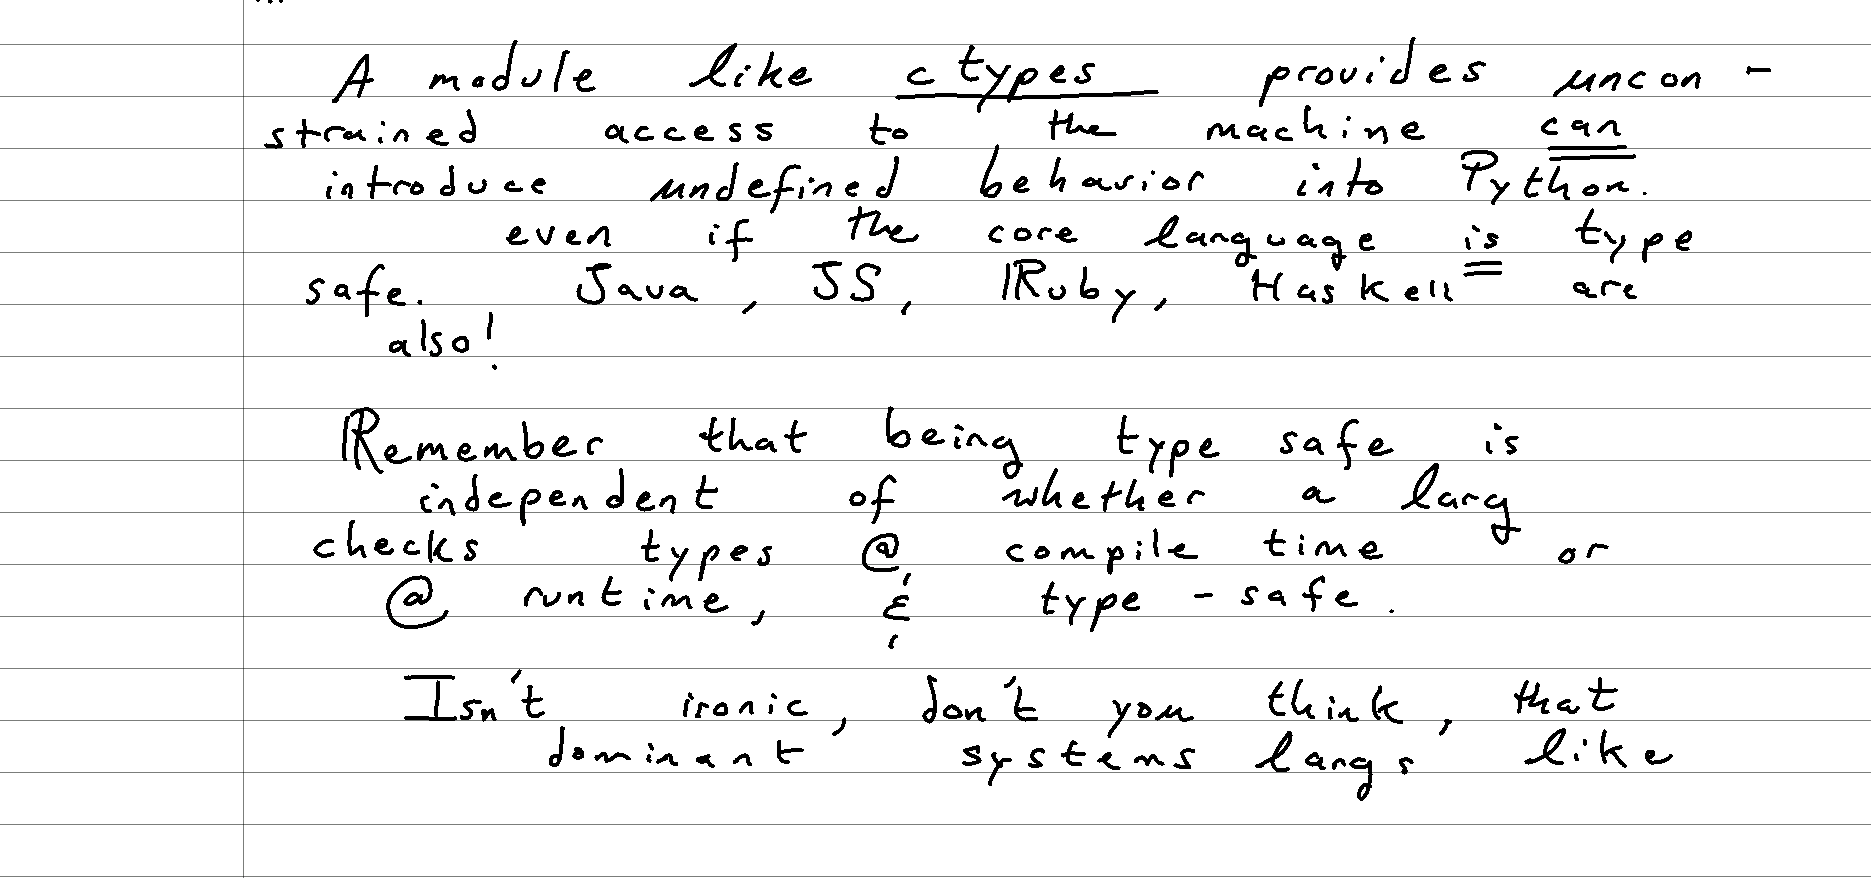 A module like ctypes provides uncon-
strained access to the machine can
introduce undefined behavior into Python.
even if the core language is type
safe. Java, JS, Ruby, Haskell are
also!
Remember that being type safe is
independent of whether a lang
checks types @ compile time or
@ runtime, & type-safe.
Isn't ironic, don't you think, that
dominant systems langs like